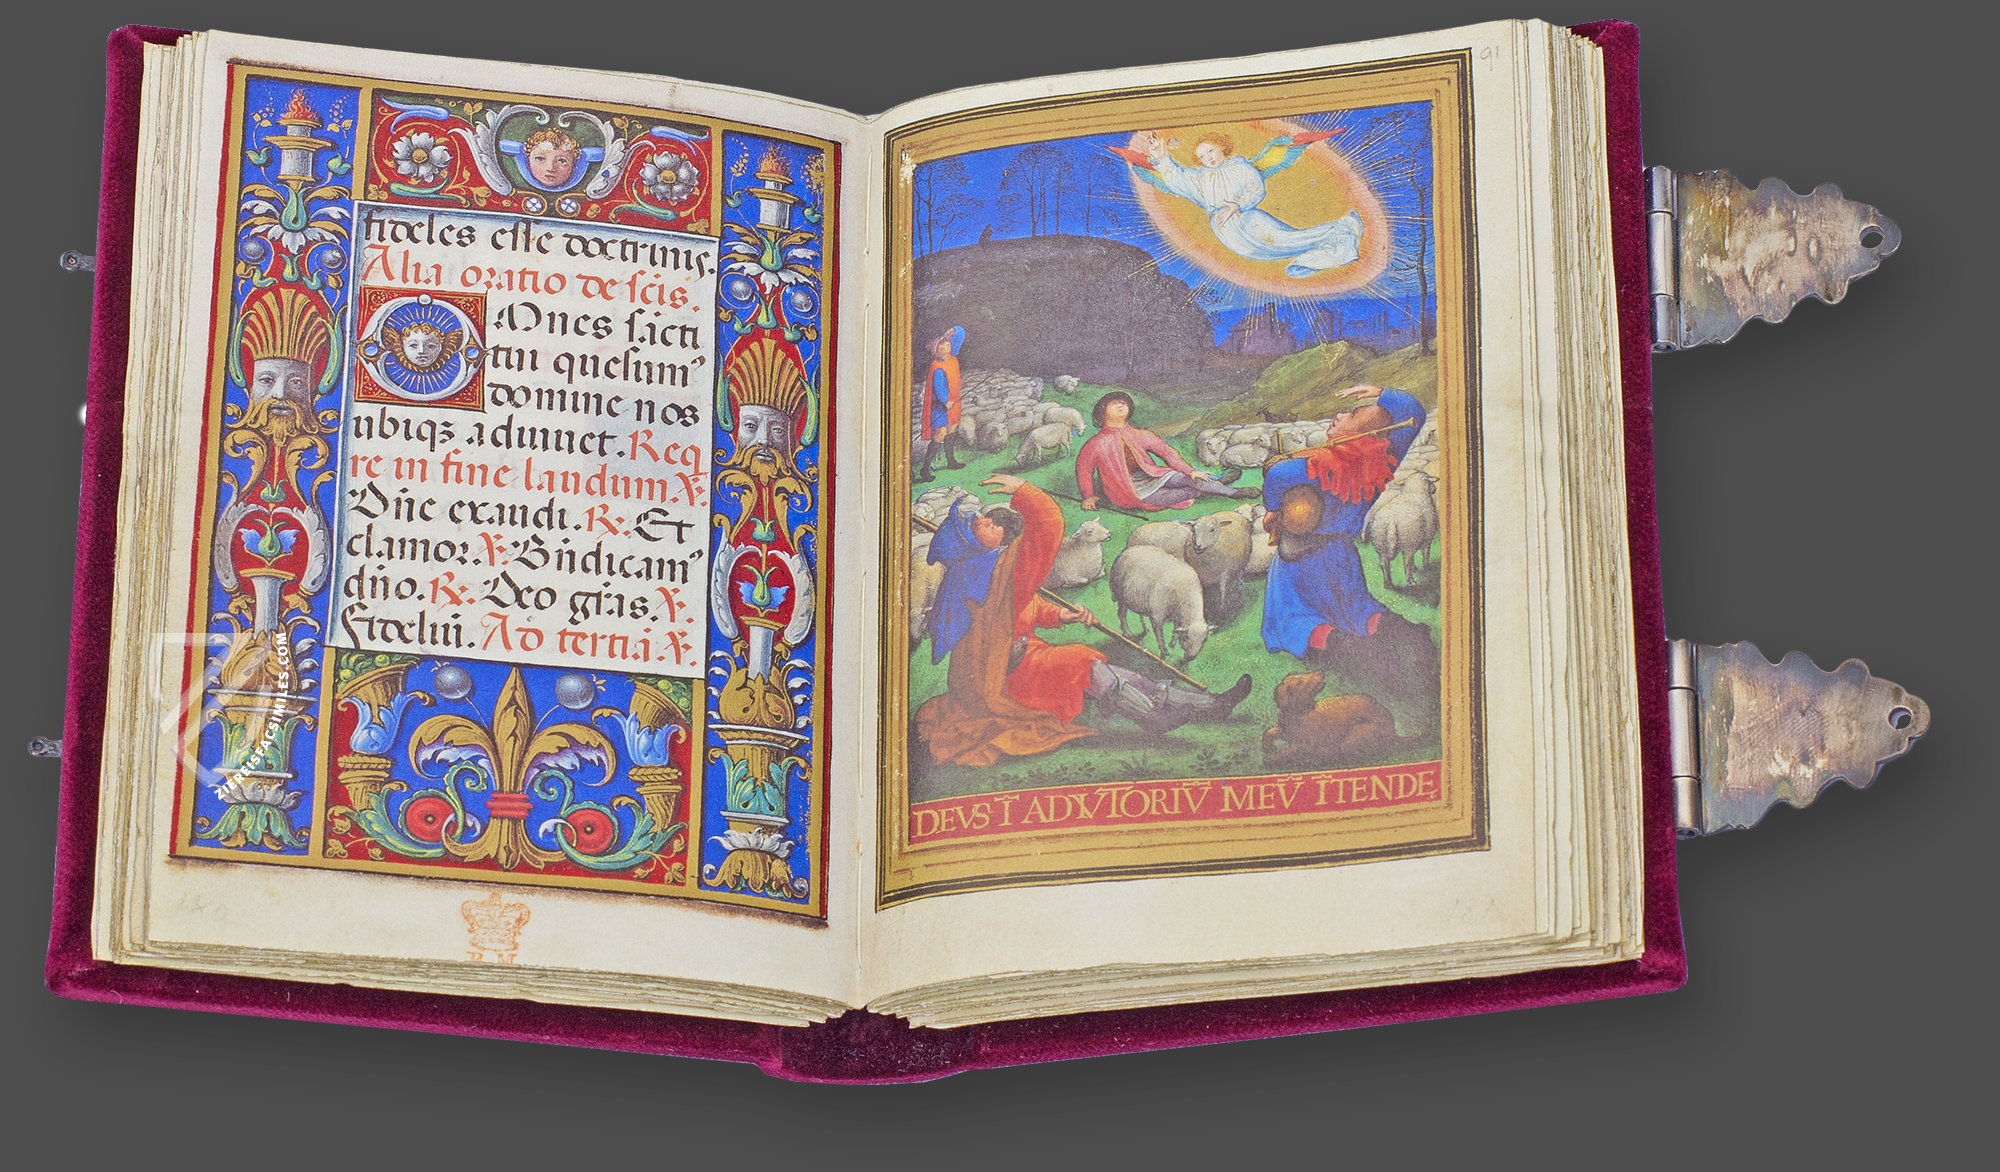 fideles esse doctrinis.
Alia oratio de scis.
Omnes sācti
tui quesum⁹
domine nos
ubiqꝫ adiuuet. Req
re in fine laudum. ℣.
Dn̄e exaudi. ℟. Et
clamor. ℣. Bn̄dicam⁹
dn̄o. ℟. Deo gr̄as. ℣.
Fideliū. Ad tertiā ℣.
B M
91
DEVS·Ī ADIVTORIV̄ MEV̄ ĪTENDE
ZIEREISFACSIMILES.COM